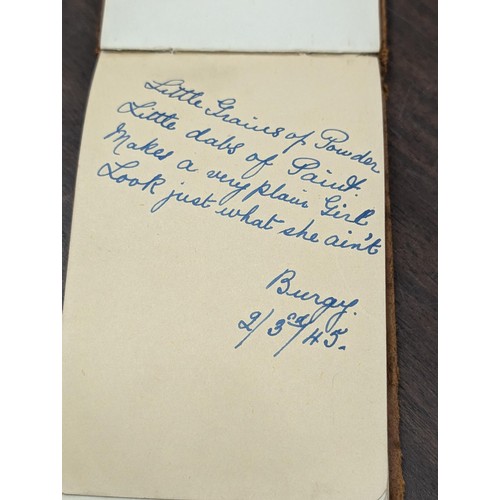 Little Grains of Powder
Little dabs of Paint
Makes a very plain Girl
Look just what she ain't
Burgy.
2/3rd/45.